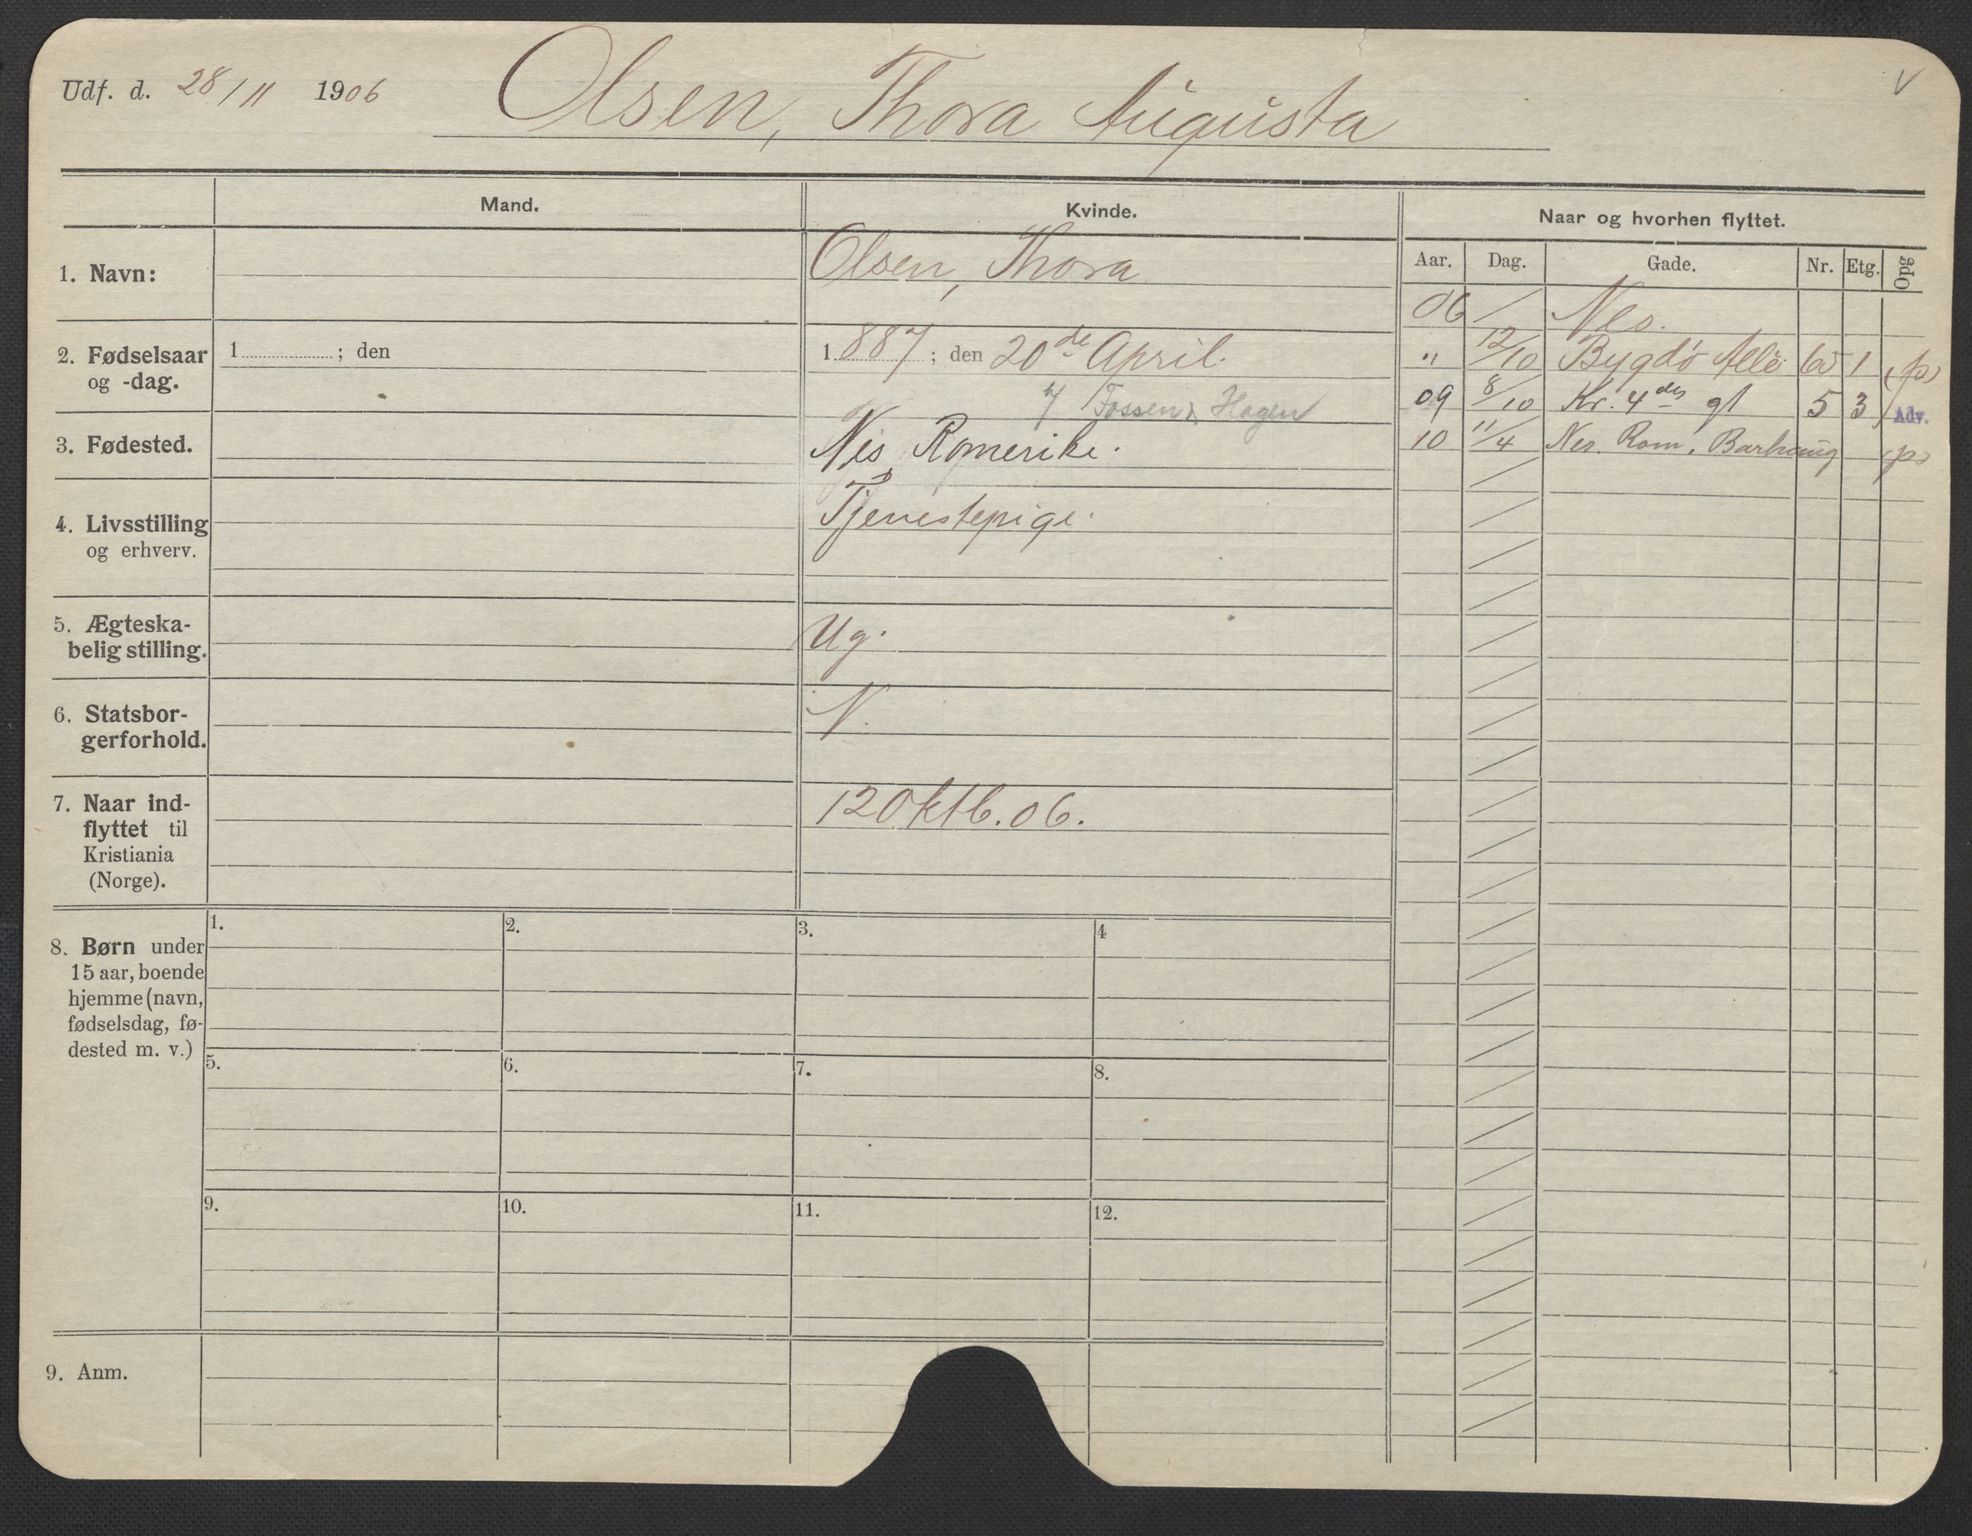 Udf. d. 28/11 1906 Olsen, Thora Augusta
Mand.
Kvinde.
Naar og hvorhen flyttet.
Aar. Dag. Gade. Nr. Etg. Opg
1. Navn:
Olsen, Thora
2. Fødselsaar
og -dag.
1 ; den
1887 ; den 20de April
Fossen Hagen
3. Fødested.
Nes Romerike.
4. Livsstilling
og erhverv.
Tjenestepige.
5. Ægteska-
belig stilling.
Ug.
6. Statsbor-
gerforhold.
N.
7. Naar ind-
flyttet til
Kristiania
(Norge).
12 Oktb. 06.
8. Børn under
15 aar, boende
hjemme (navn,
fødselsdag, fø-
dested m. v.)
1. 2. 3. 4
5. 6. 7. 8.
9. 10. 11. 12.
9. Anm.
06 Nes.
" 12/10 Bygdø Alle 60 1 (p)
09 8/10 Kr. 4des gt 5 3 Adv.
10 11/4 Nes. Rom. Barhaug (p)